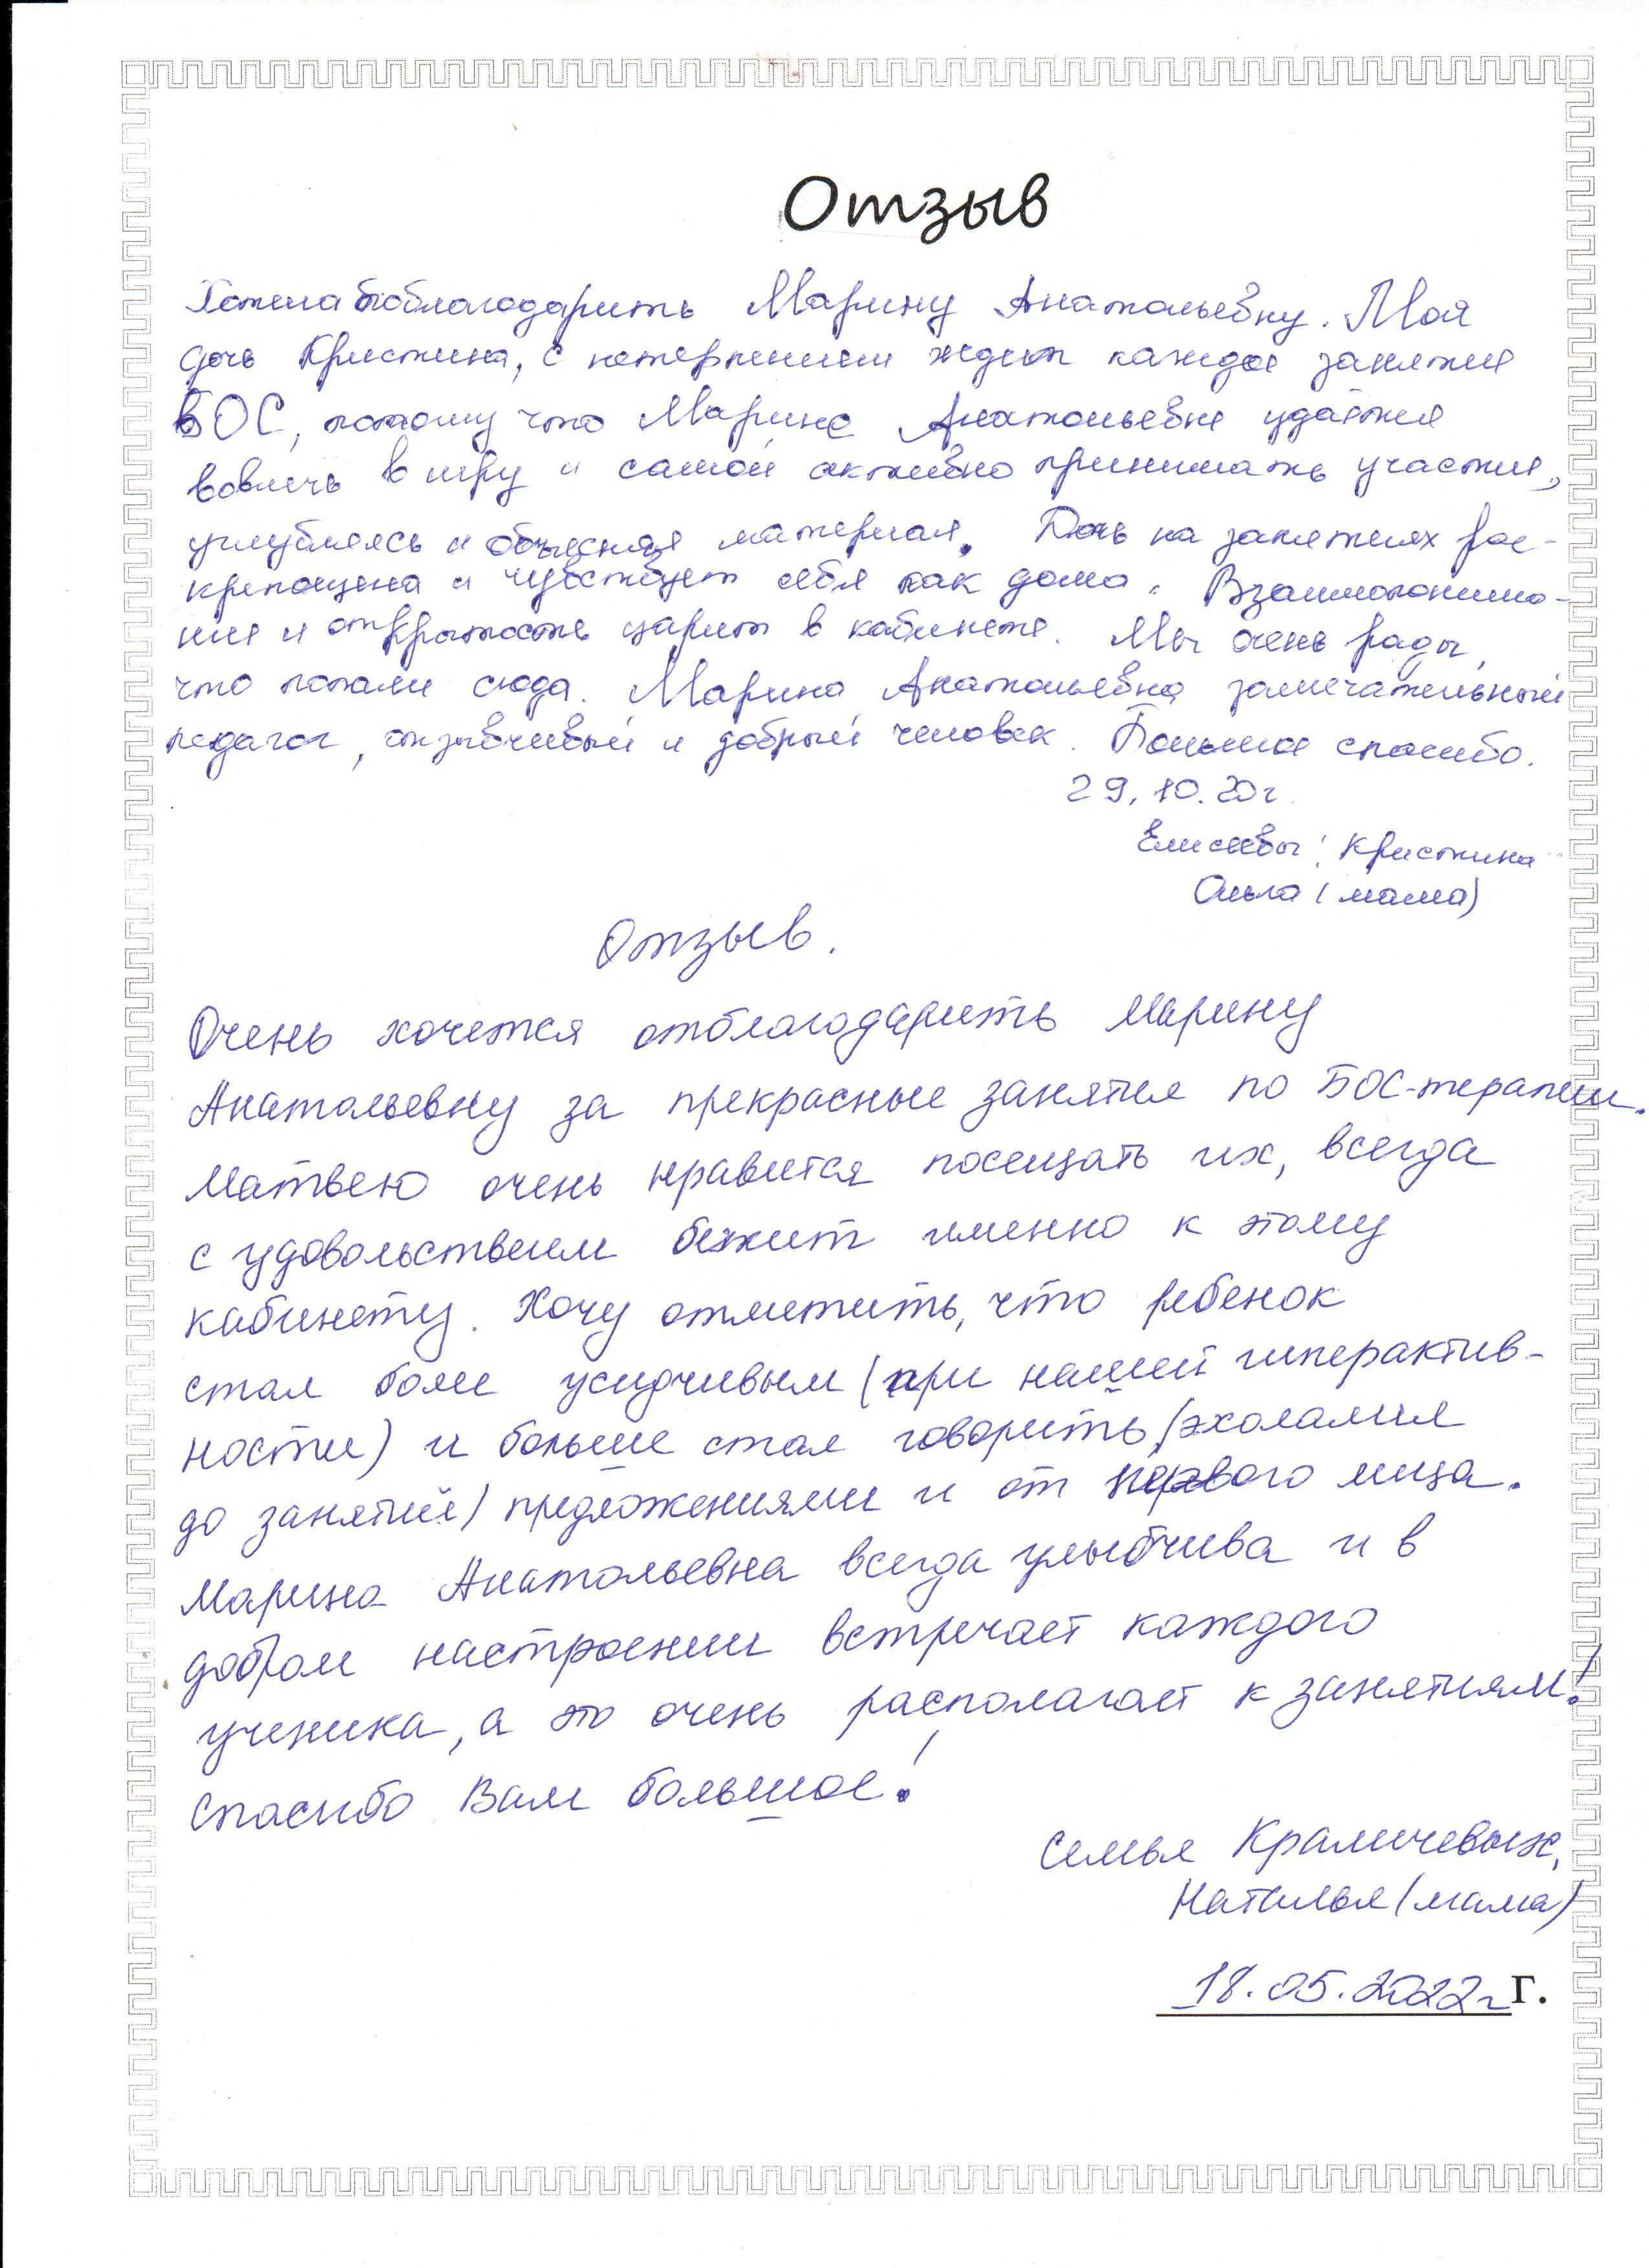 Отзыв
Хотела бы поблагодарить Марину Анатольевну. Моя
дочь Кристина, с нетерпением ждет каждое занятие
БОС, потому что Марине Анатольевне удаётся
вовлечь в игру и самой активно принимать участие,
углубляясь и объясняя материал. Дочь на занятиях рас-
крепощена и чувствует себя как дома. Взаимопонима-
ние и открытость царит в кабинете. Мы очень рады,
что попали сюда. Марина Анатольевна замечательный
педагог, отзывчивый и добрый человек. Большое спасибо.
29.10.20г.
Елисеевы: Кристина
Ольга (мама)
Отзыв.
Очень хочется отблагодарить Марину
Анатольевну за прекрасные занятия по БОС-терапии.
Матвею очень нравится посещать их, всегда
с удовольствием бежит именно к этому
кабинету. Хочу отметить, что ребенок
стал более усидчивым (при нашей гиперактив-
ности) и больше стал говорить (эхолалия
до занятий) предложениями и от первого лица.
Марина Анатольевна всегда улыбчива и в
добром настроении встречает каждого
ученика, а это очень располагает к занятиям!
Спасибо Вам большое!
Семья Крамичевых,
Наталья (мама)
18.05.2022г г.